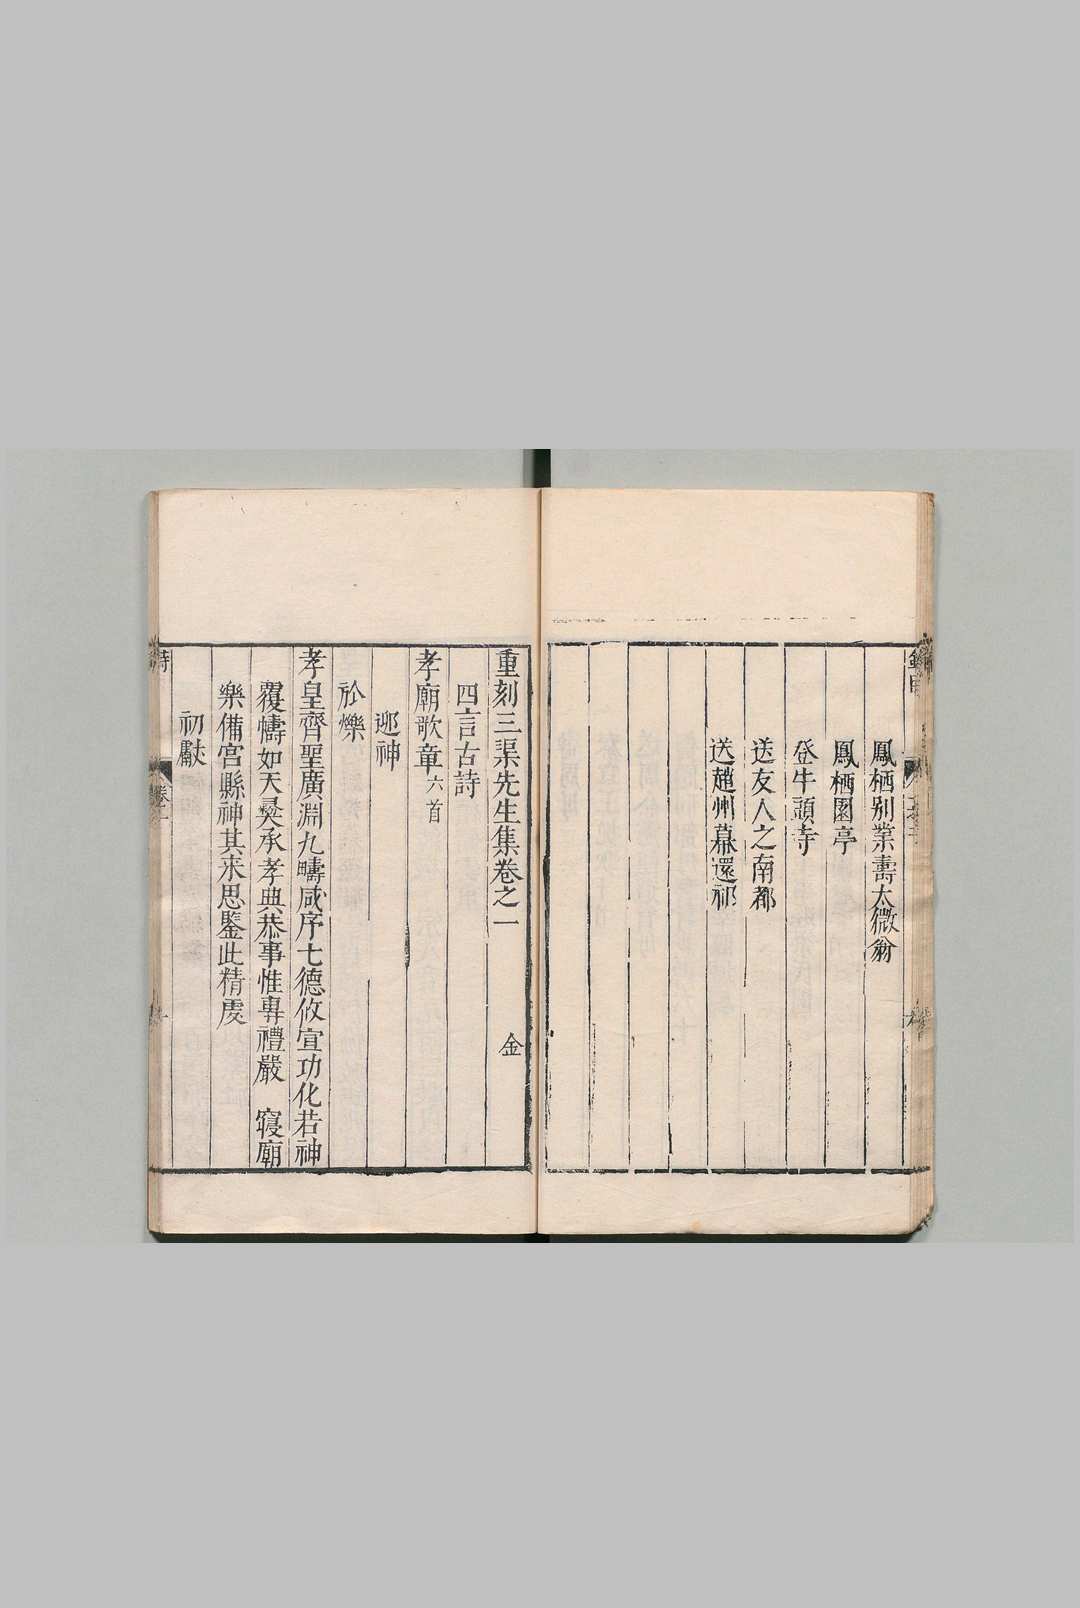 鳳栖别業壽太微翁
鳳栖園亭
登牛頭寺
送友人之南都
送趙州幕還祁
重刻三渠先生集卷之一
金
四言古詩
孝廟歌章六首
迎神
於爍
孝皇齊聖廣淵九疇咸序七德攸宣功化若神
覆幬如天爰承孝典恭事惟專禮嚴 寢廟
樂備宮縣神其来思鑒此精虔
初獻
詩
卷一